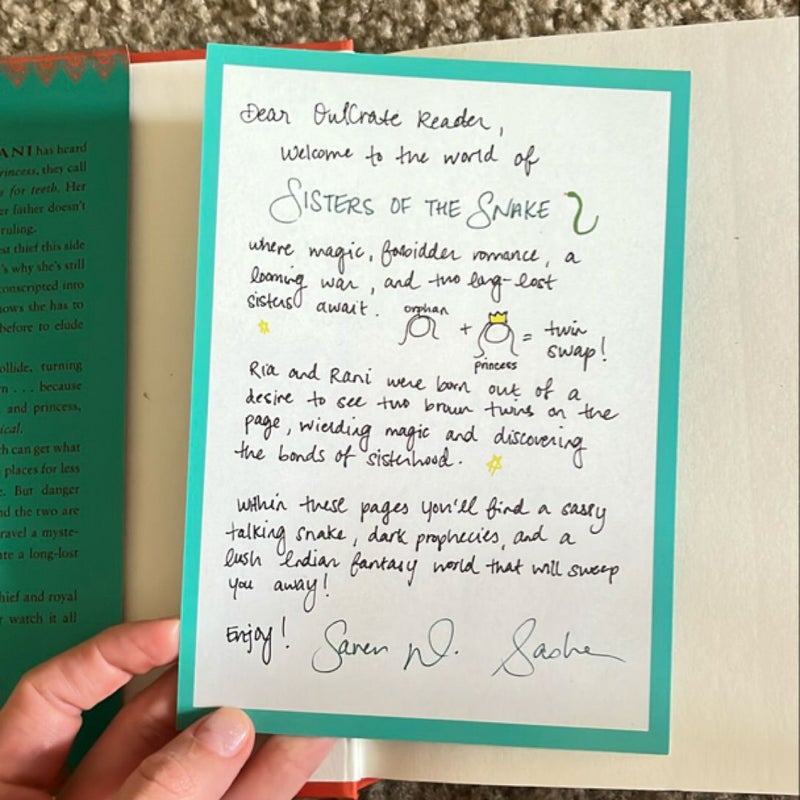 ANI has heard
rincess, they call
s for teeth. Her
er father doesn't
ruling.
est thief this side
's why she's still
conscripted into
nows she has to
before to elude
ollide, turning
n . . . because
and princess,
ical.
h can get what
places for less
e. But danger
nd the two are
ravel a myste-
ate a long-lost
hief and royal
r watch it all
Dear OwlCrate Reader,
Welcome to the world of
SISTERS OF THE SNAKE
where magic, forbidden romance, a
looming war, and two long-lost
sisters await.
orphan + princess = twin
swap!
Ria and Rani were born out of a
desire to see two brown twins on the
page, wielding magic and discovering
the bonds of sisterhood.
Within these pages you'll find a sassy
talking snake, dark prophecies, and a
lush Indian fantasy world that will sweep
you away!
Enjoy! Saren N. Sasha